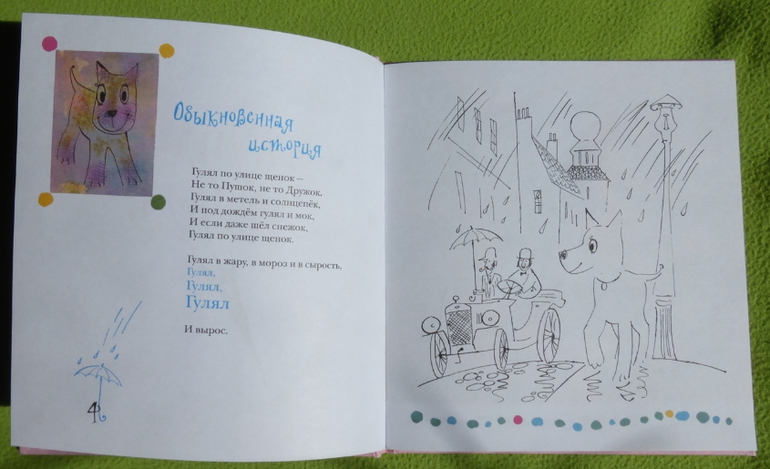 Обыкновенная
история
Гулял по улице щенок –
Не то Пушок, не то Дружок.
Гулял в метель и солнцепёк,
И под дождём гулял и мок,
И если даже шёл снежок,
Гулял по улице щенок.
Гулял в жару, в мороз и в сырость,
Гулял,
Гулял,
Гулял
И вырос.
4